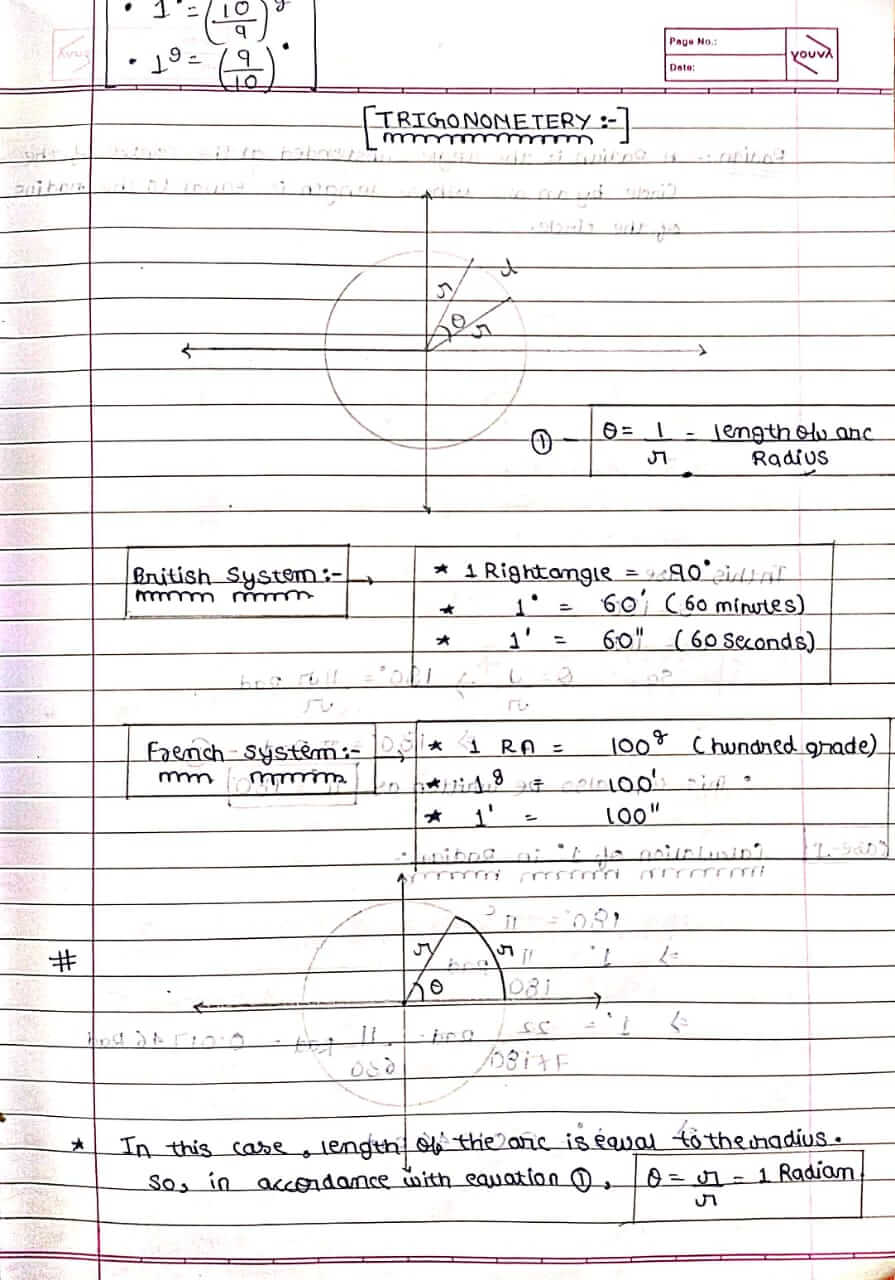 • 1° = (10/9)^g
• 1^g = (9/10)°
Page No.:
Date:
YOUVA
[TRIGONOMETERY :-]
r
l
θ
r
① - θ = l/r = length of arc / Radius
British System :- →
* 1 Rightangle = 90°
* 1° = 60' (60 minutes)
* 1' = 60" (60 Seconds)
French system :- →
* 1 RA = 100^g (hundred grade)
* 1^g = 100'
* 1' = 100"
#
r
r
θ
* In this case, length of the arc is equal to the radius.
So, in accordance with equation ①, θ = r/r = 1 Radian